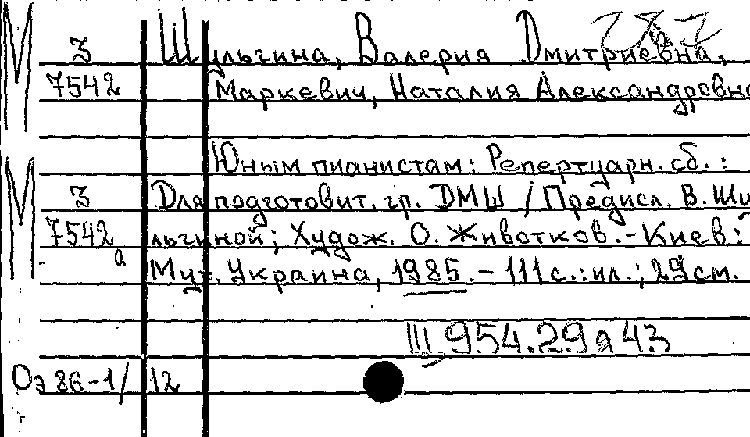 М З Шульгина, Валерия Дмитриевна, 787
7542 Маркевич, Наталия Александровна
Юным пианистам: Репертуарн. сб.:
М З Для подготовит. гр. ДМШ / Предисл. В. Шу
7542а льгиной; Худож. О. Животков. - Киев:
Муз. Украина, 1985. - 111 с.: ил.; 29 см.
III 954.29я43
Оэ 86-1/12